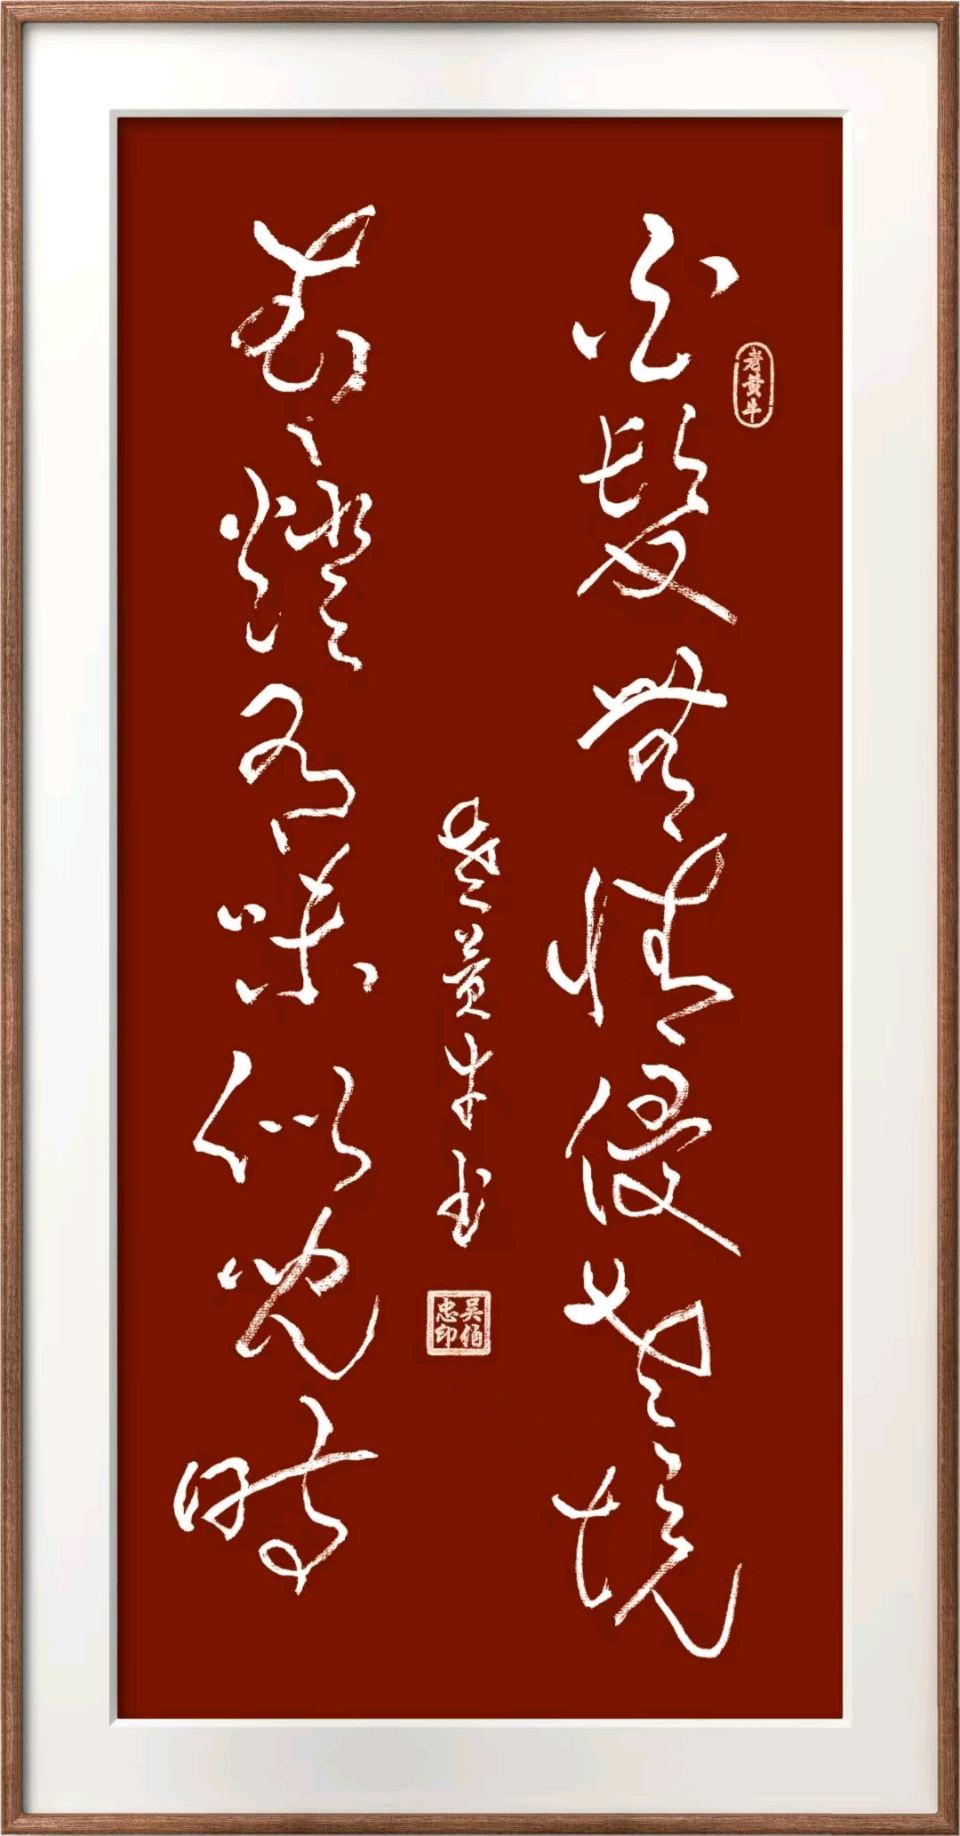 白髮無情侵老境
老黄牛
青燈有味似兒時
老黄牛书
吴伯忠印